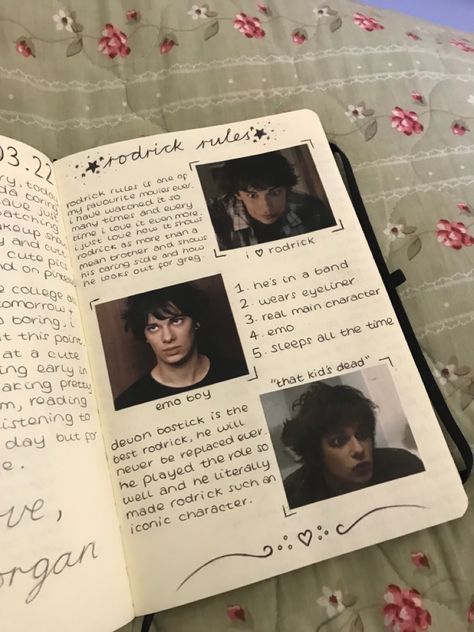 03.22
today
da boring.
watching
makeup show
and cut
cute pics
on pinte
college a
tomorrow +
boring, i
at this point
at a cute
early in
making pretty
m, reading
listening to
day but for
e.
love,
morgan
rodrick rules
rodrick rules is one of
my favourite movies ever.
i have watched it so
many times and every
time i love it even more.
i just love how it shows
rodrick as more than a
mean brother and shows
his caring side and how
he looks out for greg.
i ♡ rodrick
1. he's in a band
2. wears eyeliner
3. real main character
4. emo
5. sleeps all the time
emo boy
"that kid's dead"
devon bostick is the
best rodrick, he will
never be replaced ever.
he played the role so
well and he literally
made rodrick such an
iconic character.